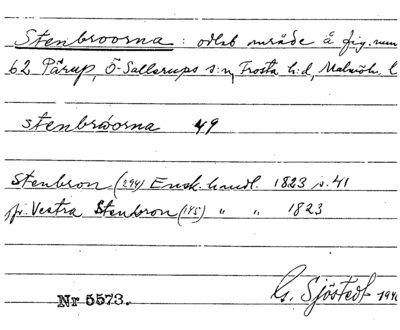 Stenbroorna: odlat område å fig. num
62 Pärup, Ö-Sallerups s:n, Frosta h:d, Malmöh. l
stenbråorna 49
Stenbron (294) Ensk. handl. 1823 s. 41
jfr. Vestra Stenbron (145) " " 1823
G. Sjöstedt 194
Nr 5573.